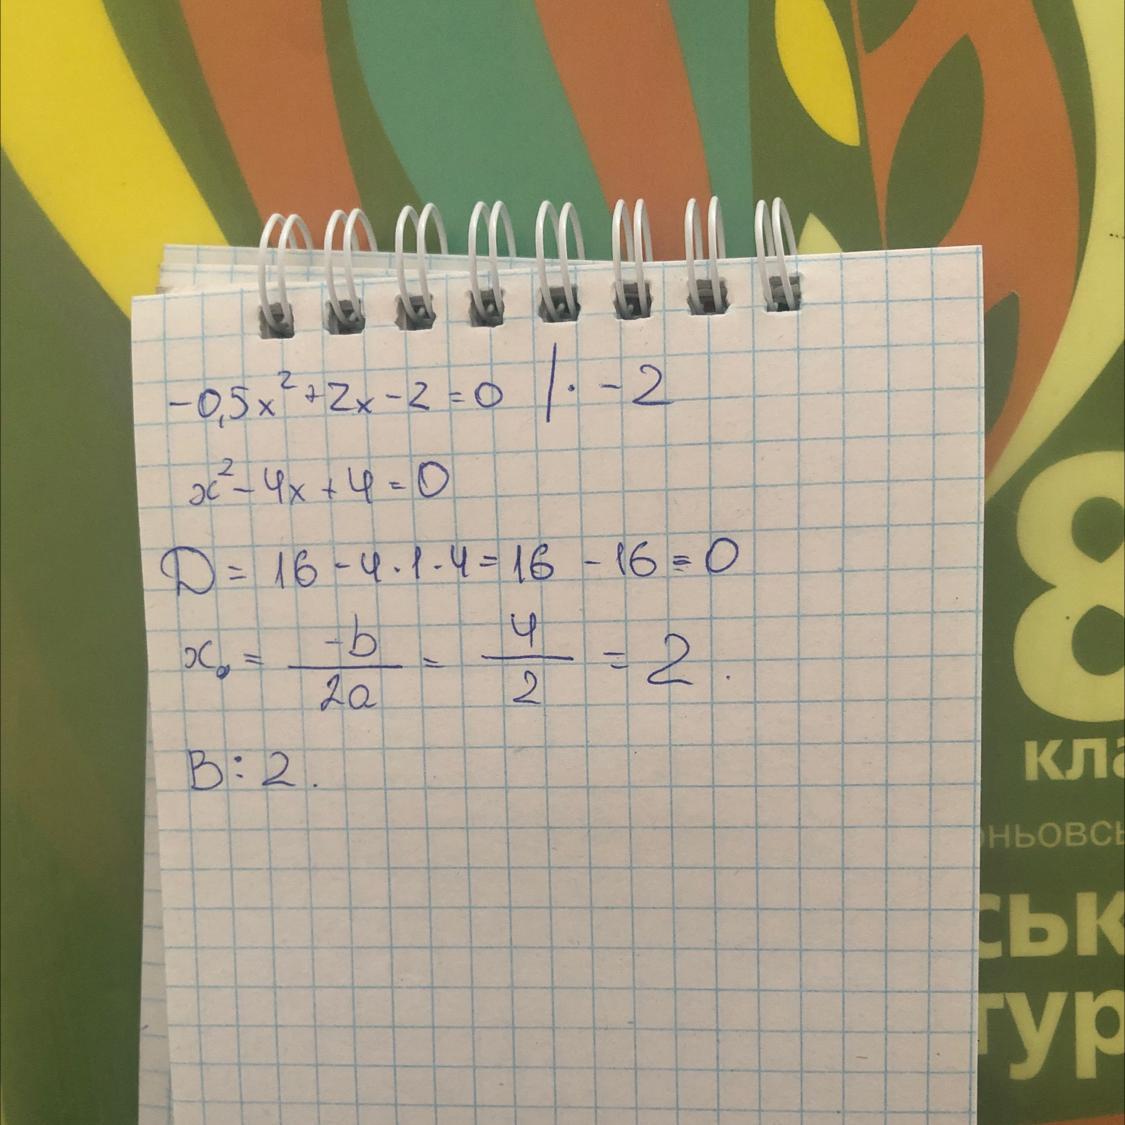 -0,5x² + 2x - 2 = 0 | · -2
x² - 4x + 4 = 0
D = 16 - 4 · 1 · 4 = 16 - 16 = 0
x₀ = -b/2a = 4/2 = 2.
В: 2.
8
кла
ньовсь
ськ
тур